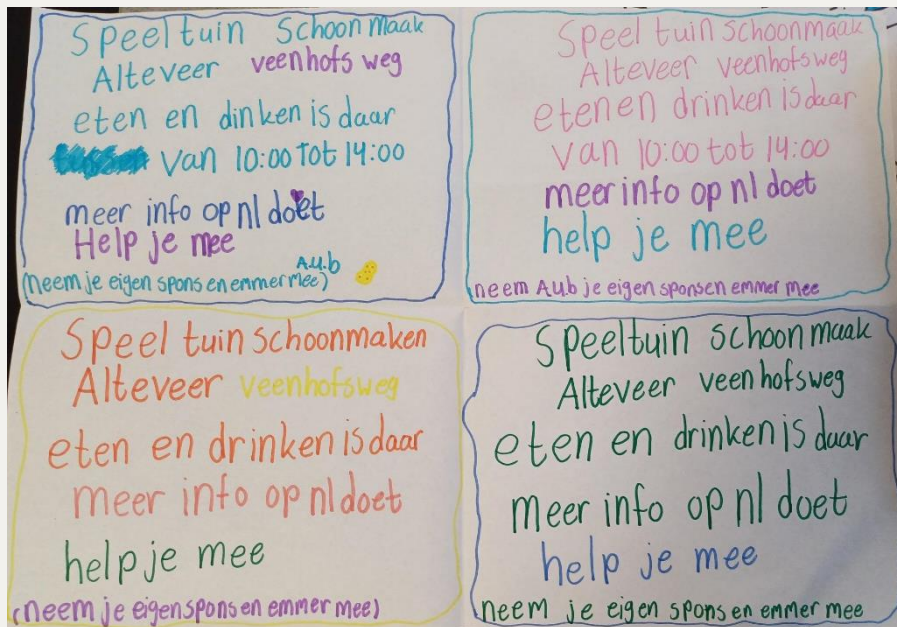 Speeltuin Schoonmaak
Alteveer veenhofs weg
eten en dinken is daar
van 10:00 Tot 14:00
meer info op nl doet
Help je mee
A.u.b
(neem je eigen spons en emmer mee)
Speel tuin schoonmaak
Alteveer veenhofsweg
eten en drinken is daar
van 10:00 tot 14:00
meer info op nl doet
help je mee
neem A.u.b je eigen spons en emmer mee
Speel tuin schoonmaken
Alteveer veenhofsweg
eten en drinken is daar
meer info op nl doet
help je mee
(neem je eigen spons en emmer mee)
Speeltuin schoonmaak
Alteveer veenhofsweg
eten en drinken is daar
meer info op nl doet
help je mee
neem je eigen spons en emmer mee